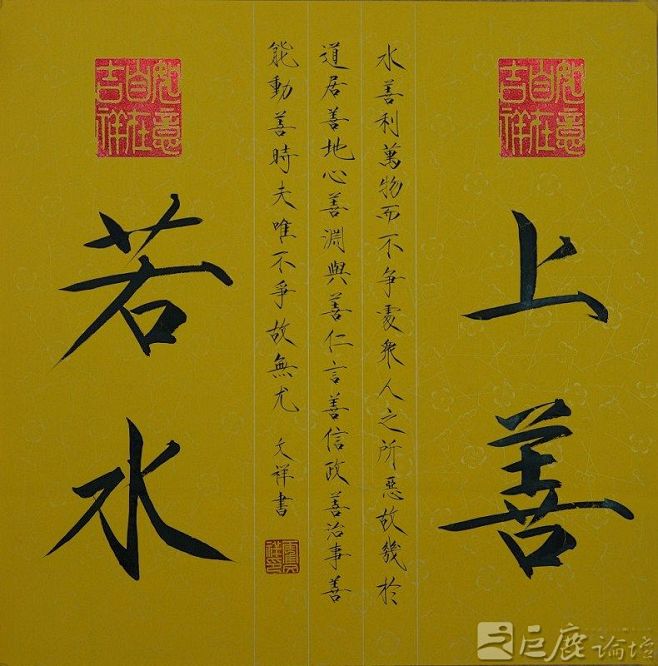 如意自在吉祥
上善
水善利萬物而不争處衆人之所惡故幾於
道居善地心善淵與善仁言善信政善治事善
能動善時夫唯不爭故無尤 文祥書
如意自在吉祥
若水
巨鹿論壇